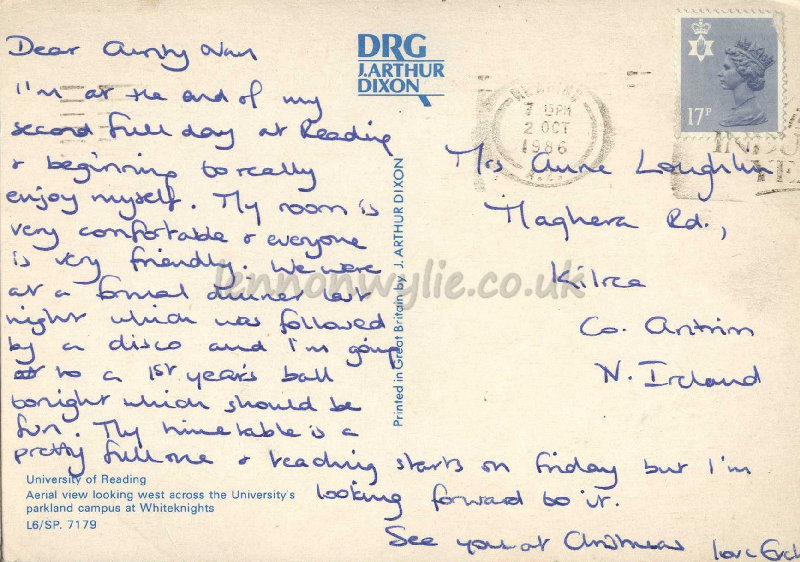 Dear Aunty Nan
I'm at the end of my
second full day at Reading
& beginning to really
enjoy myself. My room is
very comfortable & everyone
is very friendly. We were
at a formal dinner last
night which was followed
by a disco and I'm going
to a 1st year's ball
tonight which should be
fun. My timetable is a
pretty full one & teaching starts on Friday but I'm
looking forward to it.
See you at Christmas love
DRG
J.ARTHUR
DIXON
Printed in Great Britain by J. ARTHUR DIXON
READING
7 15PM
2 OCT
1986
17P
Mrs Anne Loughlin
Maghera Rd.,
Kilrea
Co. Antrim
N. Ireland
lennonwylie.co.uk
University of Reading
Aerial view looking west across the University's
parkland campus at Whiteknights
L6/SP. 7179